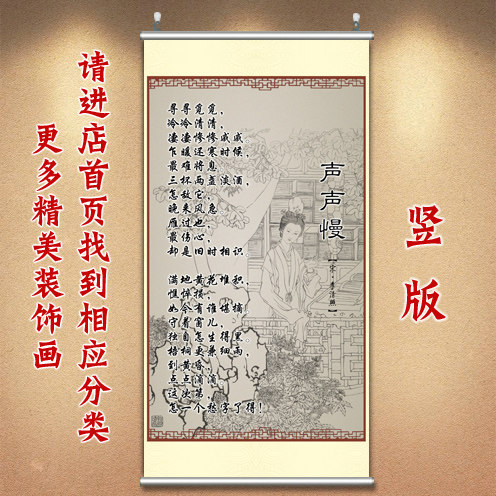 请进店首页找到相应分类
更多精美装饰画
竖版
声声慢
【宋·李清照】
寻寻觅觅,
冷冷清清,
凄凄惨惨戚戚
乍暖还寒时候,
最难将息
三杯两盏淡酒,
怎敌它、
晚来风急
雁过也,
最伤心,
却是旧时相识
满地黄花堆积,
憔悴损,
如今有谁堪摘
守着窗儿
独自怎生得黑
梧桐更兼细雨,
到黄昏、
点点滴滴
这次第,
怎一个愁字了得!